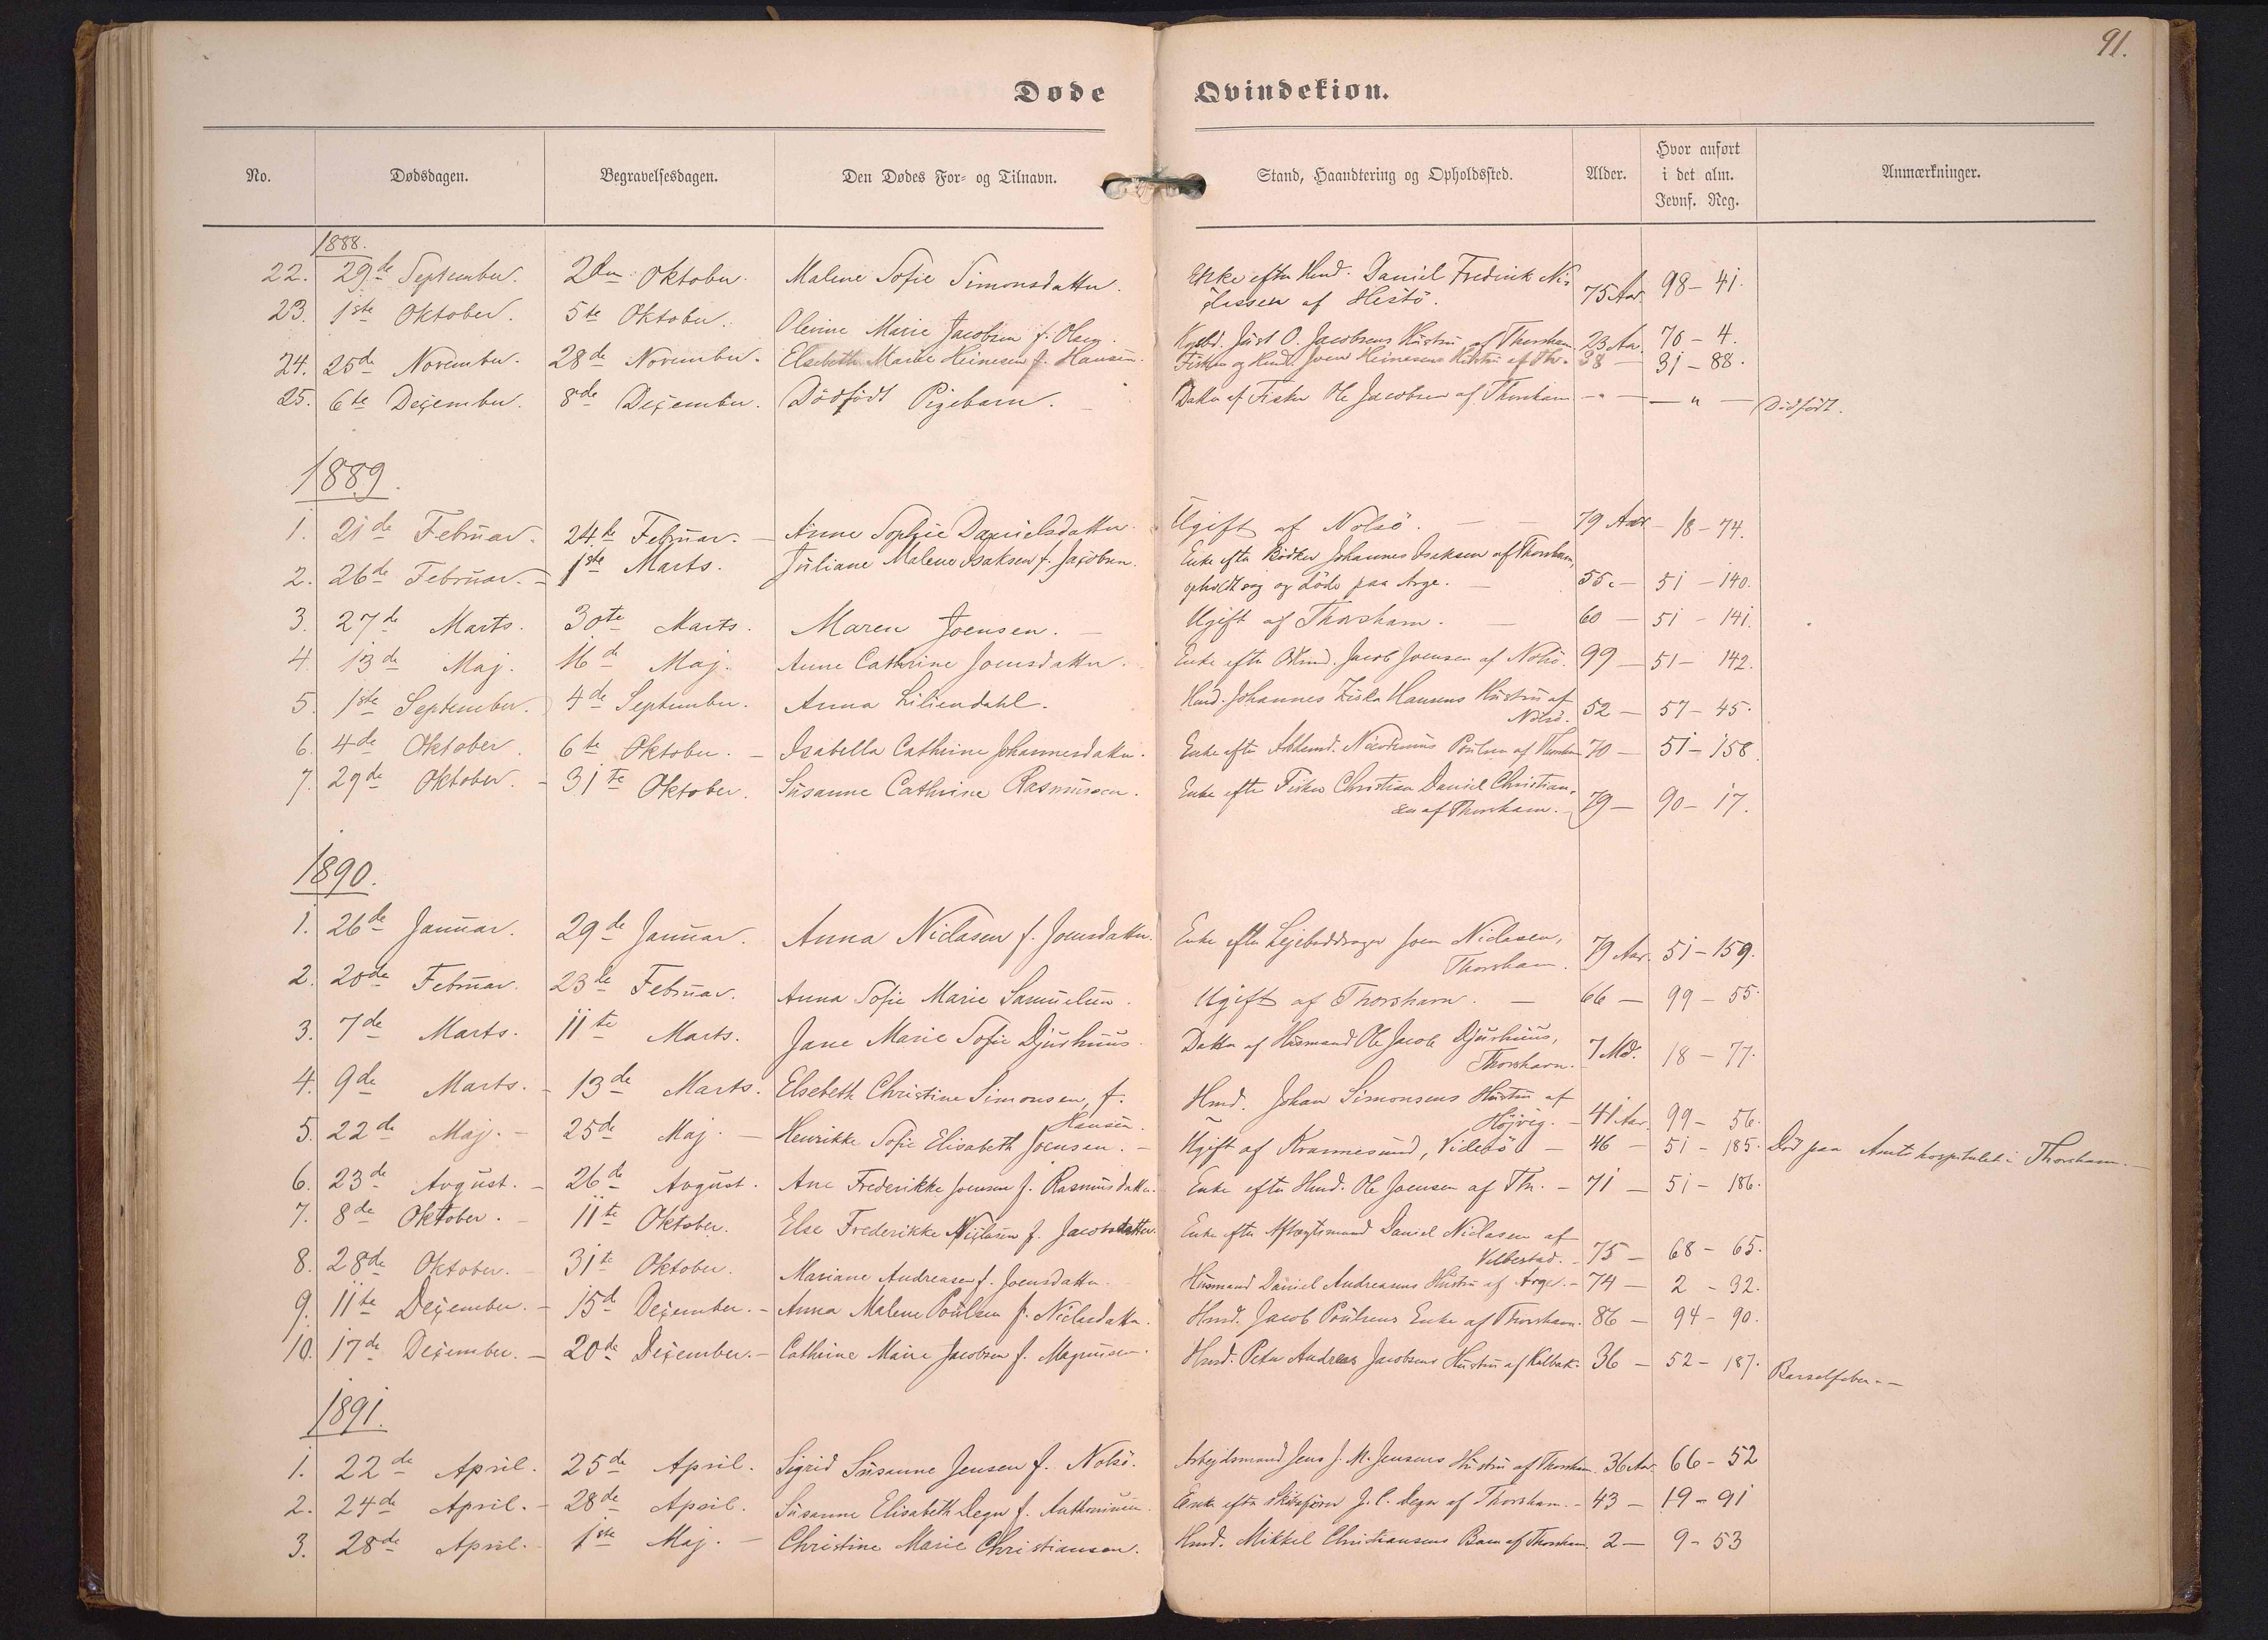 91.
Døde Qvindekiøn.
No. Dødsdagen. Begravelsesdagen. Den Dødes For- og Tilnavn. Stand, Haandtering og Opholdssted. Alder. Hvor anført i det alm. Jevnf. Reg. Anmærkninger.
1888.
22. 29de September. 2den Oktober. Malene Sofie Simonsdatter. Enke efter Hmd. Daniel Fredrik Ni-
classen af Hestö. 75 Aar. 98 - 41.
23. 1ste Oktober. 5te Oktober. Olevine Marie Jacobsen f. Olsen. Kgsbd. Just O. Jacobsens Hustru af Thorshavn. 23 Aar. 76 - 4.
24. 25de November. 28de November. Elsebeth Marie Heinesen f. Hansen. Fisker og Hmd. Joen Heinesens Hustru af Thv. 38 — 31 - 88.
25. 6te Deçember. 8de Deçember. Dödfödt Pigebarn. — Datter af Fisker Ole Jacobsen af Thorshavn — " — — " — Dödfödt.
1889.
1. 21de Februar. 24de Februar. — Anne Sophie Danielsdatter. Ugift af Nolsö. — — 79 Aar — 18 - 74.
2. 26de Februar. — 1ste Marts. Juliane Malene Isaksen f. Jacobsen. Enke efter Bödker Johannes Isaksen af Thorshavn,
opholdt sig og döde paa Arge. — 55. — 51 - 140.
3. 27de Marts. 30te Marts. Maren Joensen. — Ugift af Thorshavn. — 60 — 51 - 141.
4. 13de Maj. 16de Maj. Anne Cathrine Joensdatter. Enke efter Jacob Joensen af Nolsö. 99 — 51 - 142.
5. 1ste September. 4de September. Anna Liliendahl. Hmd. Johannes Ziska Hansens Hustru af
Nolsö. 52 — 57 - 45.
6. 4de Oktober. 6te Oktober. — Isabella Cathrine Johannesdatter. Enke efter Nicodemus Poulsen af Thorshavn 70 — 51 - 158.
7. 29de Oktober. — 31te Oktober. Susanne Cathrine Rasmussen. Enke efter Fisker Christian Daniel Christian-
sen af Thorshavn. — 79 — 90 - 17.
1890.
1. 26de Januar. 29de Januar. Anna Niclasen f. Joensdatter. Enke efter Joen Niclasen,
Thorshavn. 79 Aar. 51 - 159.
2. 20de Februar. 23de Februar. Anna Sofie Marie Samuelsen. Ugift af Thorshavn. — 66 — 99 - 55.
3. 7de Marts. 11te Marts. Jane Marie Sofie Djurhuus. Datter af Husmand Ole Jacob Djurhuus,
Thorshavn. 7 Md. 18 - 77.
4. 9de Marts. — 13de Marts. Elsebeth Christine Simonsen, f.
Hansen. Hmd. Johan Simonsens Hustru af
Höjvig. — 41 Aar. 99 - 56.
5. 22de Maj. — 25de Maj. — Henrikke Sofie Elisabeth Joensen. — Ugift af Kvannesund, Viderö — 46 — 51 - 185. Död paa Amtshospitalet i Thorshavn. —
6. 23de Avgust. — 26de Avgust. Ane Frederikke Joensen f. Rasmusdatter. Enke efter Hmd. Ole Joensen af Thv. — 71 — 51 - 186.
7. 8de Oktober. — 11te Oktober. Else Frederikke Niclasen f. Jacobsdatter. Enke efter Aftægtsmand Daniel Niclasen af
Velbestad. — 75 — 68 - 65.
8. 28de Oktober. — 31te Oktober. Mariane Andreasen f. Joensdatter. Husmand Daniel Andreasens Hustru af Arge. — 74 — 2 - 32.
9. 11te Deçember. — 15de Deçember. — Anna Malene Poulsen f. Niclasdatter. Hmd. Jacob Poulsens Enke af Thorshavn. 86 — 94 - 90.
10. 17de Deçember. — 20de Deçember. — Cathrine Marie Jacobsen f. Magnussen. Hmd. Peter Andreas Jacobsens Hustru af Kalbak. 36 — 52 - 187. Barselfeber. —
1891.
1. 22de April. 25de April. Sigrid Susanne Jensen f. Nolsö. Arbejdsmand Jens J. M. Jensens Hustru af Thorshavn. 36 Aar. 66 - 52
2. 24de April. — 28de April. Susanne Elisabeth Degn f. Anthoniusen. Enke efter Skibsförer J. C. Degn af Thorshavn. — 43 — 19 - 91
3. 28de April. 1ste Maj. — Christine Marie Christiansen. Hmd. Mikkel Christiansens Barn af Thorshavn. 2 — 9 - 53